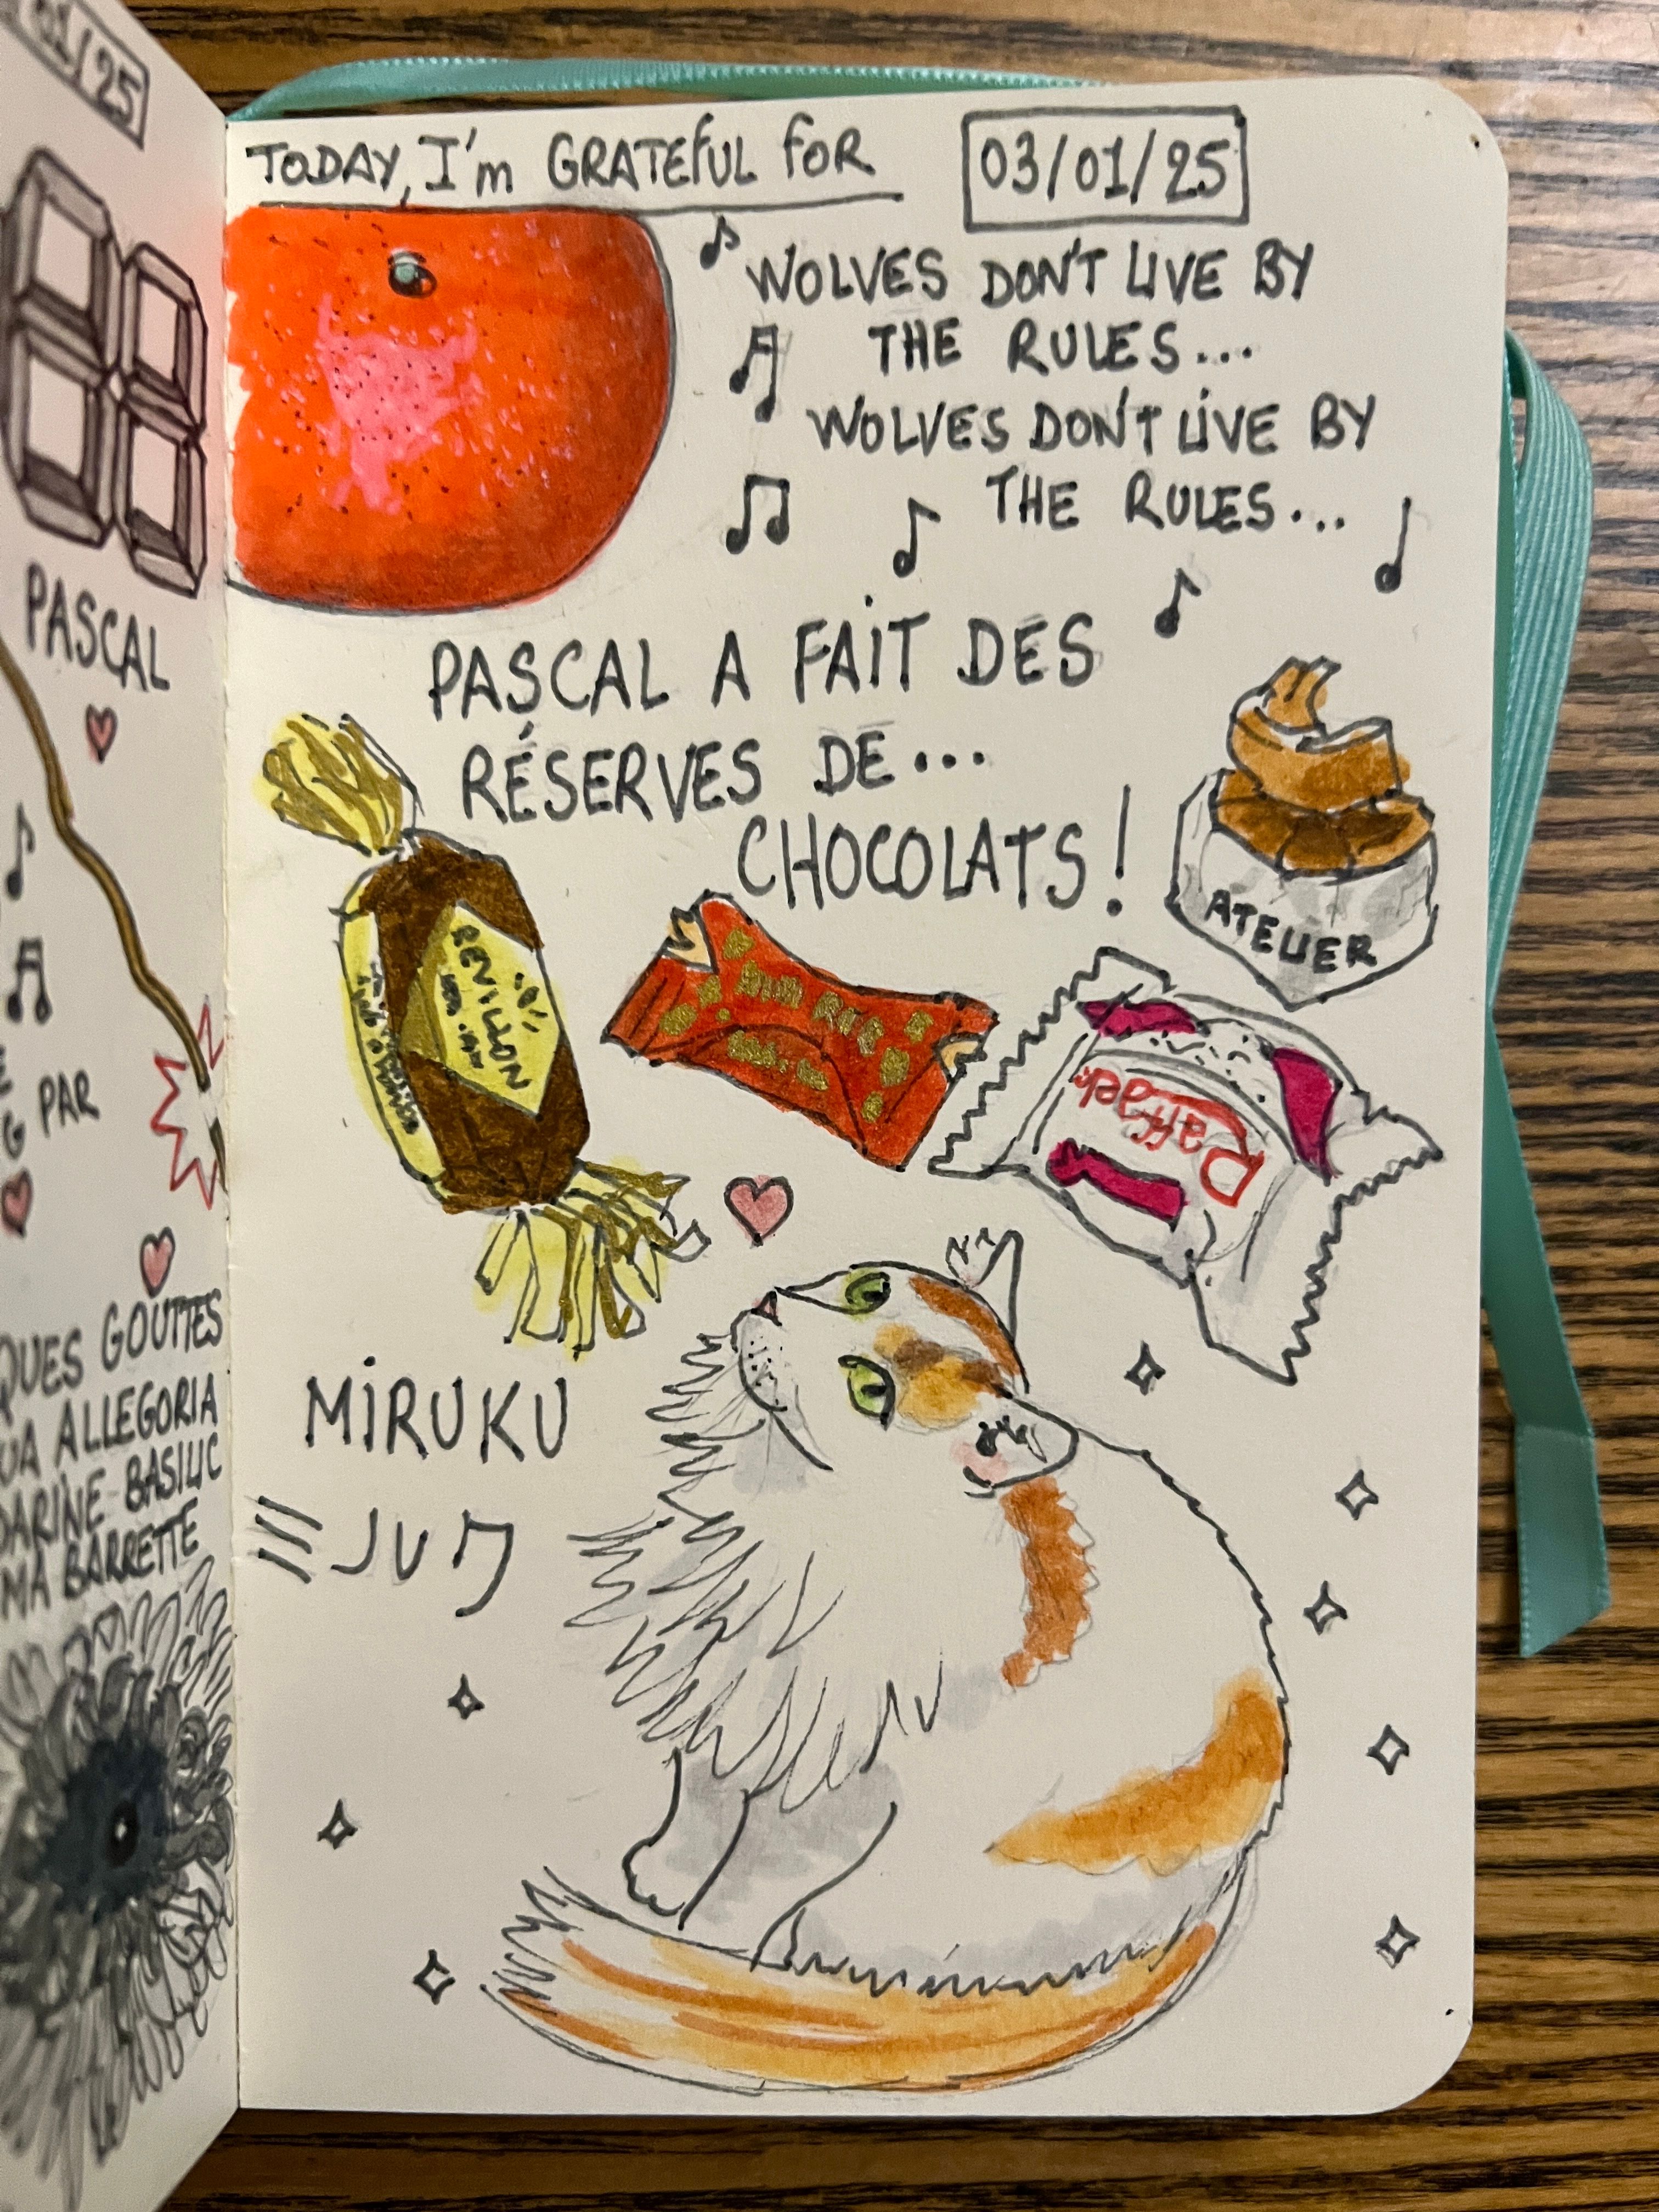 /25
PASCAL
PAR
QUES GOUTTES
UA ALLEGORIA
DARINE-BASILIC
MA BARRETTE
TODAY, I'm GRATEFUL FOR
03/01/25
WOLVES DON'T LIVE BY
THE RULES...
WOLVES DON'T LIVE BY
THE RULES...
PASCAL A FAIT DES
RÉSERVES DE...
CHOCOLATS!
ATELIER
REVILLON
Raffaelo
MIRUKU
ミルク